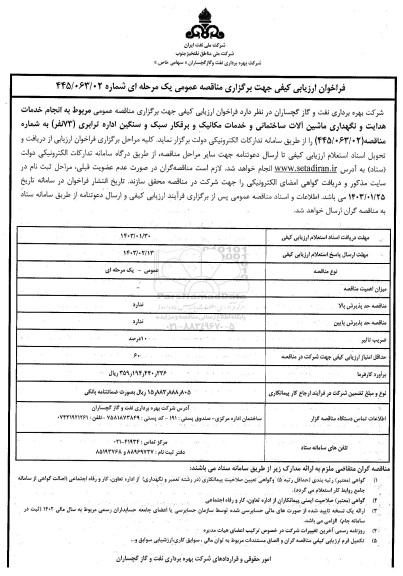 شرکت ملی نفت ایران
شرکت ملی مناطق نفتخیز جنوب
شرکت بهره برداری نفت و گاز گچساران « سهامی خاص »
فراخوان ارزیابی کیفی جهت برگزاری مناقصه عمومی یک مرحله ای شماره ۴۴۵/۰۶۳/۰۲
شرکت بهره برداری نفت و گاز گچساران در نظر دارد فراخوان ارزیابی کیفی جهت برگزاری مناقصه عمومی مربوط به انجام خدمات
هدایت و نگهداری ماشین آلات ساختمانی و خدمات مکانیک و برقکار سبک و سنگین اداره ترابری (۷۳نفر) به شماره
مناقصه(۴۴۵/۰۶۳/۰۲) را از طریق سامانه تدارکات الکترونیکی دولت برگزار نماید. کلیه مراحل برگزاری فراخوان ارزیابی از دریافت و
تحویل اسناد استعلام ارزیابی کیفی تا ارسال دعوتنامه جهت سایر مراحل مناقصه، از طریق درگاه سامانه تدارکات الکترونیکی دولت
(ستاد) به آدرس www.setadiran.ir انجام خواهد شد. لازم است مناقصه‌گران در صورت عدم عضویت قبلی، مراحل ثبت نام در
سایت مذکور و دریافت گواهی امضای الکترونیکی را جهت شرکت در مناقصه محقق سازند. تاریخ انتشار فراخوان در سامانه تاریخ
۱۴۰۳/۰۱/۲۵ می باشد. اطلاعات و اسناد مناقصه عمومی پس از برگزاری فرآیند ارزیابی کیفی و ارسال دعوتنامه از طریق سامانه ستاد
به مناقصه گران ارسال خواهد شد.
مهلت دریافت اسناد استعلام ارزیابی کیفی ۱۴۰۳/۰۱/۳۰
مهلت ارسال پاسخ استعلام ارزیابی کیفی ۱۴۰۳/۰۲/۱۳
نوع مناقصه عمومی - یک مرحله ای
میزان اهمیت مناقصه
مناقصه حد پذیرش بالا ندارد
مناقصه حد پذیرش پایین ندارد
ضریب تاثیر ۱۰درصد
حداقل امتیاز ارزیابی کیفی جهت شرکت در مناقصه ۶۰
برآورد کارفرما
نوع و مبلغ تضمین شرکت در فرآیند ارجاع کار پیمانکاری ریال بصورت ضمانتنامه بانکی
آدرس شرکت بهره برداری نفت و گاز گچساران
اطلاعات تماس دستگاه مناقصه گزار ساختمان اداره مرکزی- صندوق پستی : ۱۹۱ - کد پستی :
تلفن های سامانه ستاد مرکز تماس : ۴۱۹۳۴-۰۲۱
دفتر ثبت نام : ۸۸۹۶۹۷۳۷ و ۸۵۱۹۳۷۶۸
مناقصه گران متقاضی ملزم به ارائه مدارک زیر از طریق سامانه ستاد می باشند:
۱) گواهی (معتبر) رتبه بندی (حداقل رتبه ۵) وگواهی تعیین صلاحیت پیمانکاری (در رشته تعمیر و نگهداری) از اداره تعاون، کار و رفاه اجتماعی (اصالت گواهی از سامانه
جامع روابط کار استعلام می گردد).
۲) گواهی (معتبر) صلاحیت ایمنی پیمانکاران از اداره تعاون، کار و رفاه اجتماعی
۳) ارائه یک نسخه تایید شده از صورت های مالی حسابرسی شده توسط سازمان حسابرسی یا اعضای جامعه حسابداران رسمی مربوط به سال مالی ۱۴۰۲ (ثبت در
سامانه جام) الزامی می باشد.
۴) روزنامه رسمی آخرین تغییرات شرکت در خصوص ترکیب اعضای هیات مدیره
۵) تکمیل فرم ارزیابی کیفی مناقصه گران و الصاق مستندات مربوط به توان مالی ، سوابق کاری،ارزشیابی سوابق و...
امور حقوقی و قراردادهای شرکت بهره برداری نفت و گاز گچساران